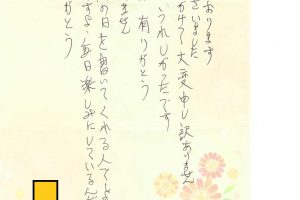 おります
ざいました
かけて大変申し訳ありません
うれしかったです
有りがとう
ません
の日を書いてくれる人で
すよ、毎日楽しみにしているんだ
がとう